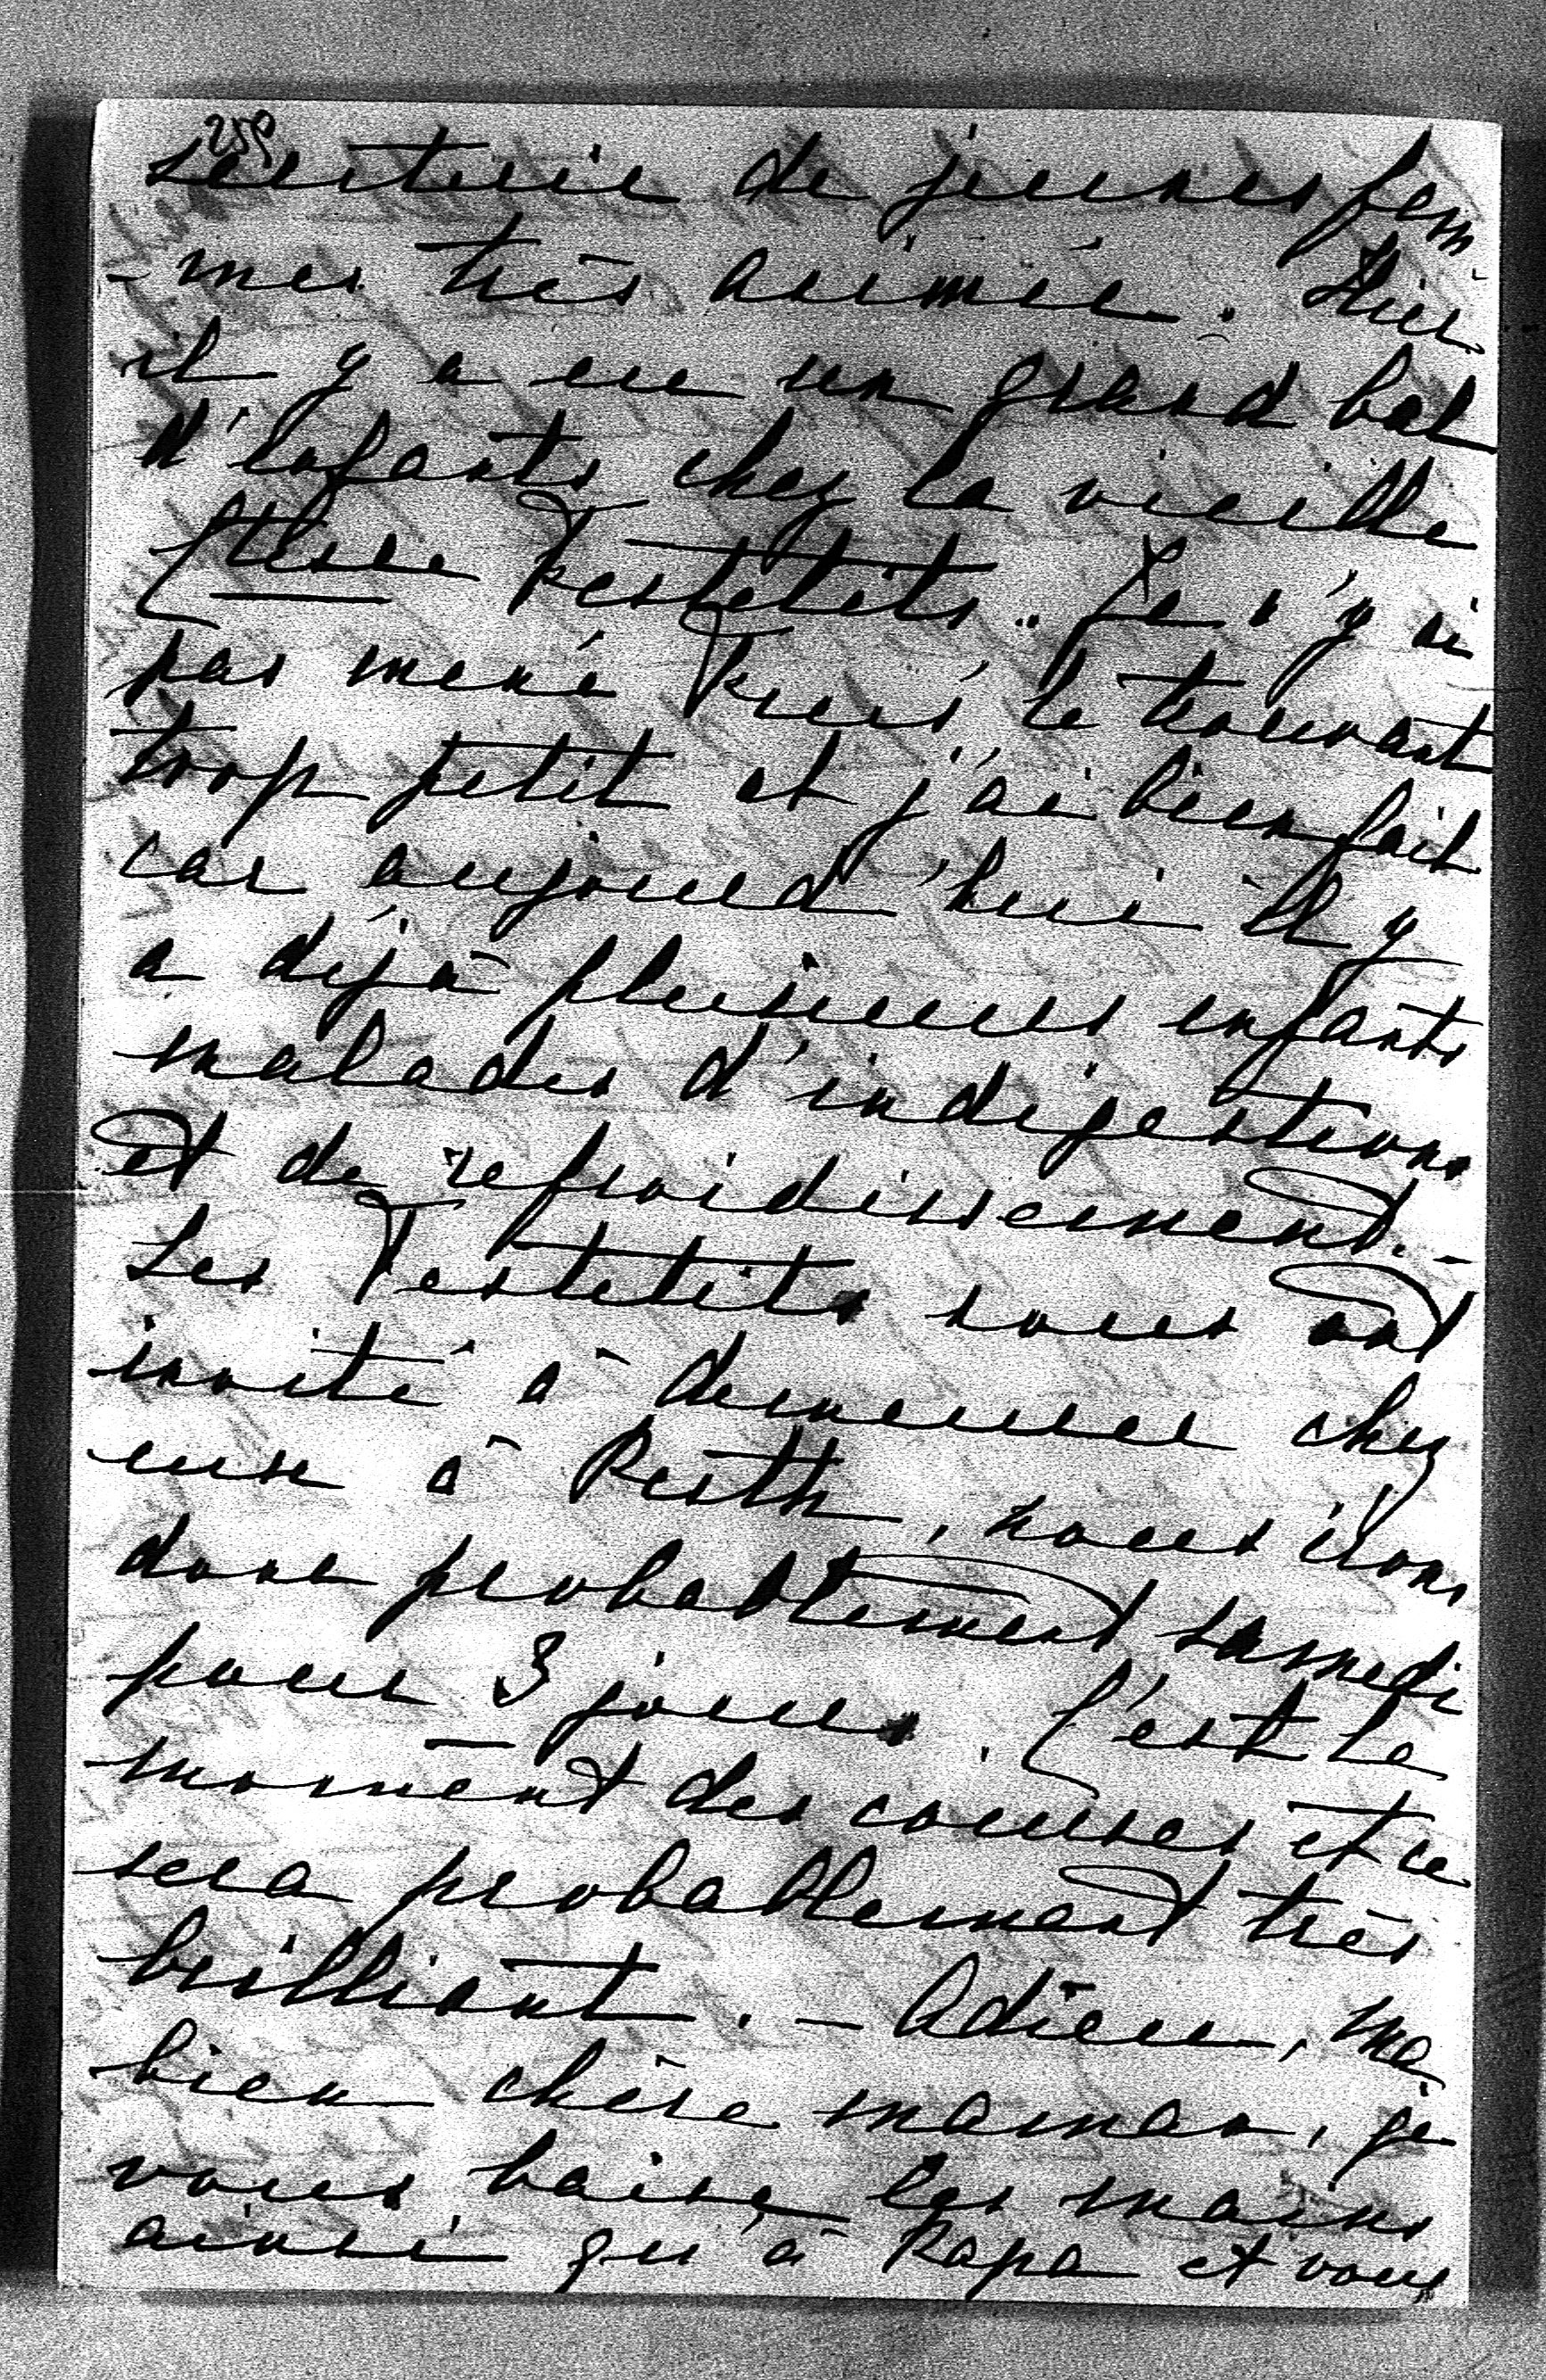 259
de jeunes fem
-mes très animée. Hier
il y a eu un grand bal
d'enfants chez la vieille
Ctesse Festetits. Je n'y ai
pas mené le trouvant
trop petit et j'ai bien fait
car aujourd'hui il y
a déjà plusieurs enfants
malades d'indigestions
et de refroidissement. -
Les Festetits nous ont
invité à demeurer chez
eux à Pesth, nous irons
donc probablement samedi
pour 3 jours. C'est le
moment des courses et ce
sera probablement très
brilliant. - Adieu, ma
bien chère maman, je
vous baise les mains
ainsi qu'à Papa et vous